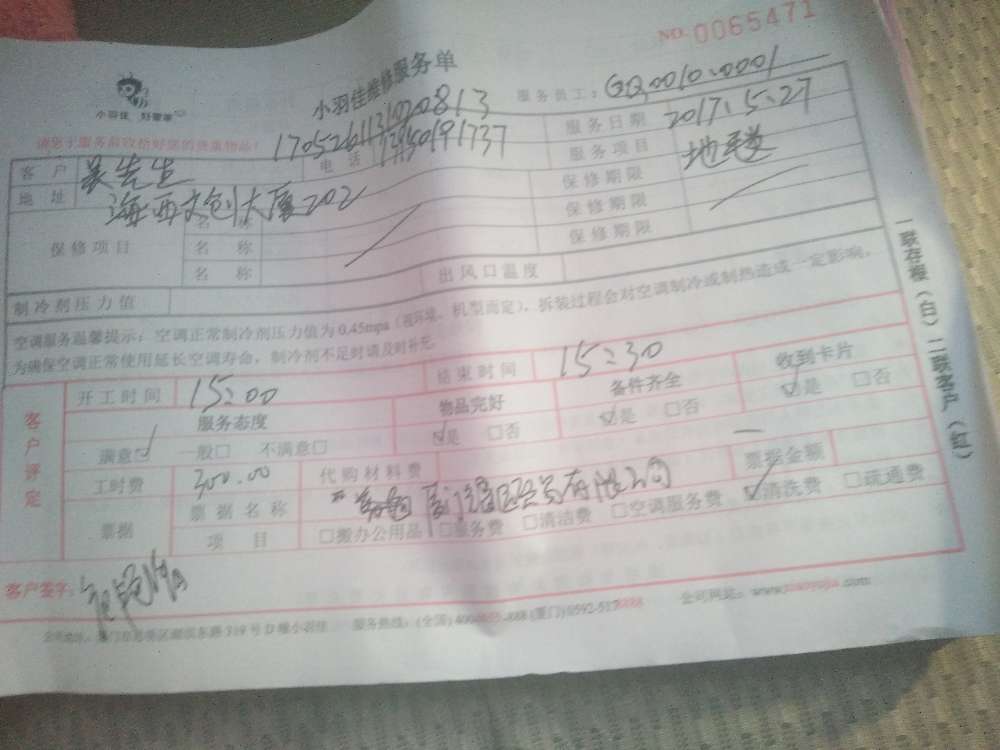 NO. 0065471
小羽佳 好管家
小羽佳维修服务单
服务员工：GQ0010.0001
1705261131020813
服务日期 2017.5.27
客户 吴先生 电话
服务项目 地毯
地址 海西文创大厦202
保修期限
保修项目 名称
保修期限
名称
保修期限
名称 出风口温度
制冷剂压力值
空调服务温馨提示：空调正常制冷剂压力值为0.45mpa（视环境、机型而定），拆装过程会对空调制冷或制热造成一定影响，
为确保空调正常使用延长空调寿命，制冷剂不足时请及时补充。
客户评定
开工时间 15:00 结束时间 15:30
服务态度 物品完好 备件齐全 收到卡片
满意☑ 一般□ 不满意□ ☑是 □否 ☑是 □否 ☑是 □否
工时费 300.00 代购材料费 —
票据 票据名称 有限公司 票据金额
项目 □搬办公用品 □服务费 □清洁费 □空调服务费 ☑清洗费 □疏通费
客户签字：
服务热线：(全国) (厦门)0592-517
公司网址：www.xiaoyujia.com
一联存根（白）二联客户（红）